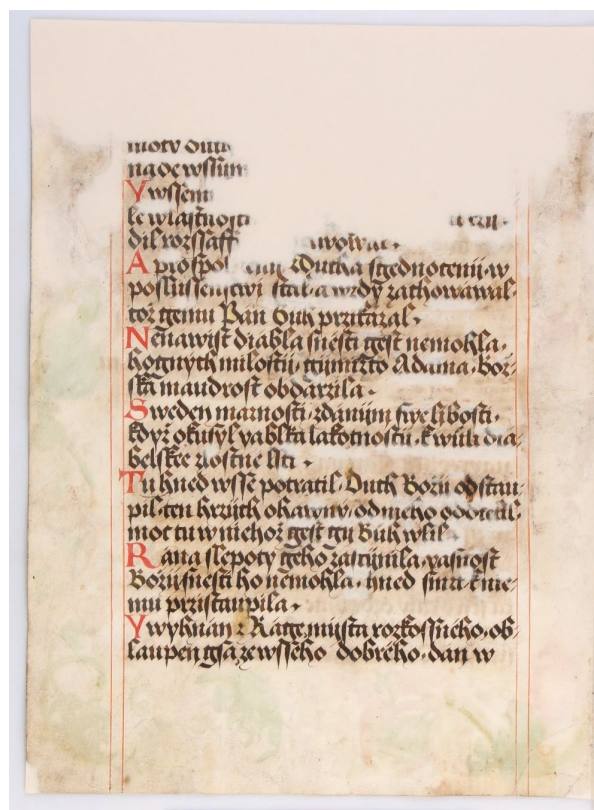 moty duch
nade wssim
Y wssem
le wlastnosti
dil rozssaff
A prospol Ducha sgednotenij w
poslussenstwi stal a wzdy zachowawal
toz gemu Pan Buh przikazal
Nenawist diabla snesti gest nemohla
hognych milostij, gijmizto Adama Boz-
ska maudrost obdarzila
Sweden marnosti zdanijm swe libosti
kdyz okusyl yablka lakotnosti k wuli dia-
belskee zlostne lsti
Tu hned wsse potratil Duch Bozij opstau-
pil ten hrzijch ohawny od nieho oddielil
moc tu w niehoz gest gej Buh wlil
Rana slepoty geho zaczijnila yasnost
Bozij snesti ho nemohla hned smrt k nie-
mu przistaupila
Y wyhnan z Rage mijsta rozkossneho ob-
laupen gsa ze wsseho dobreho dan w